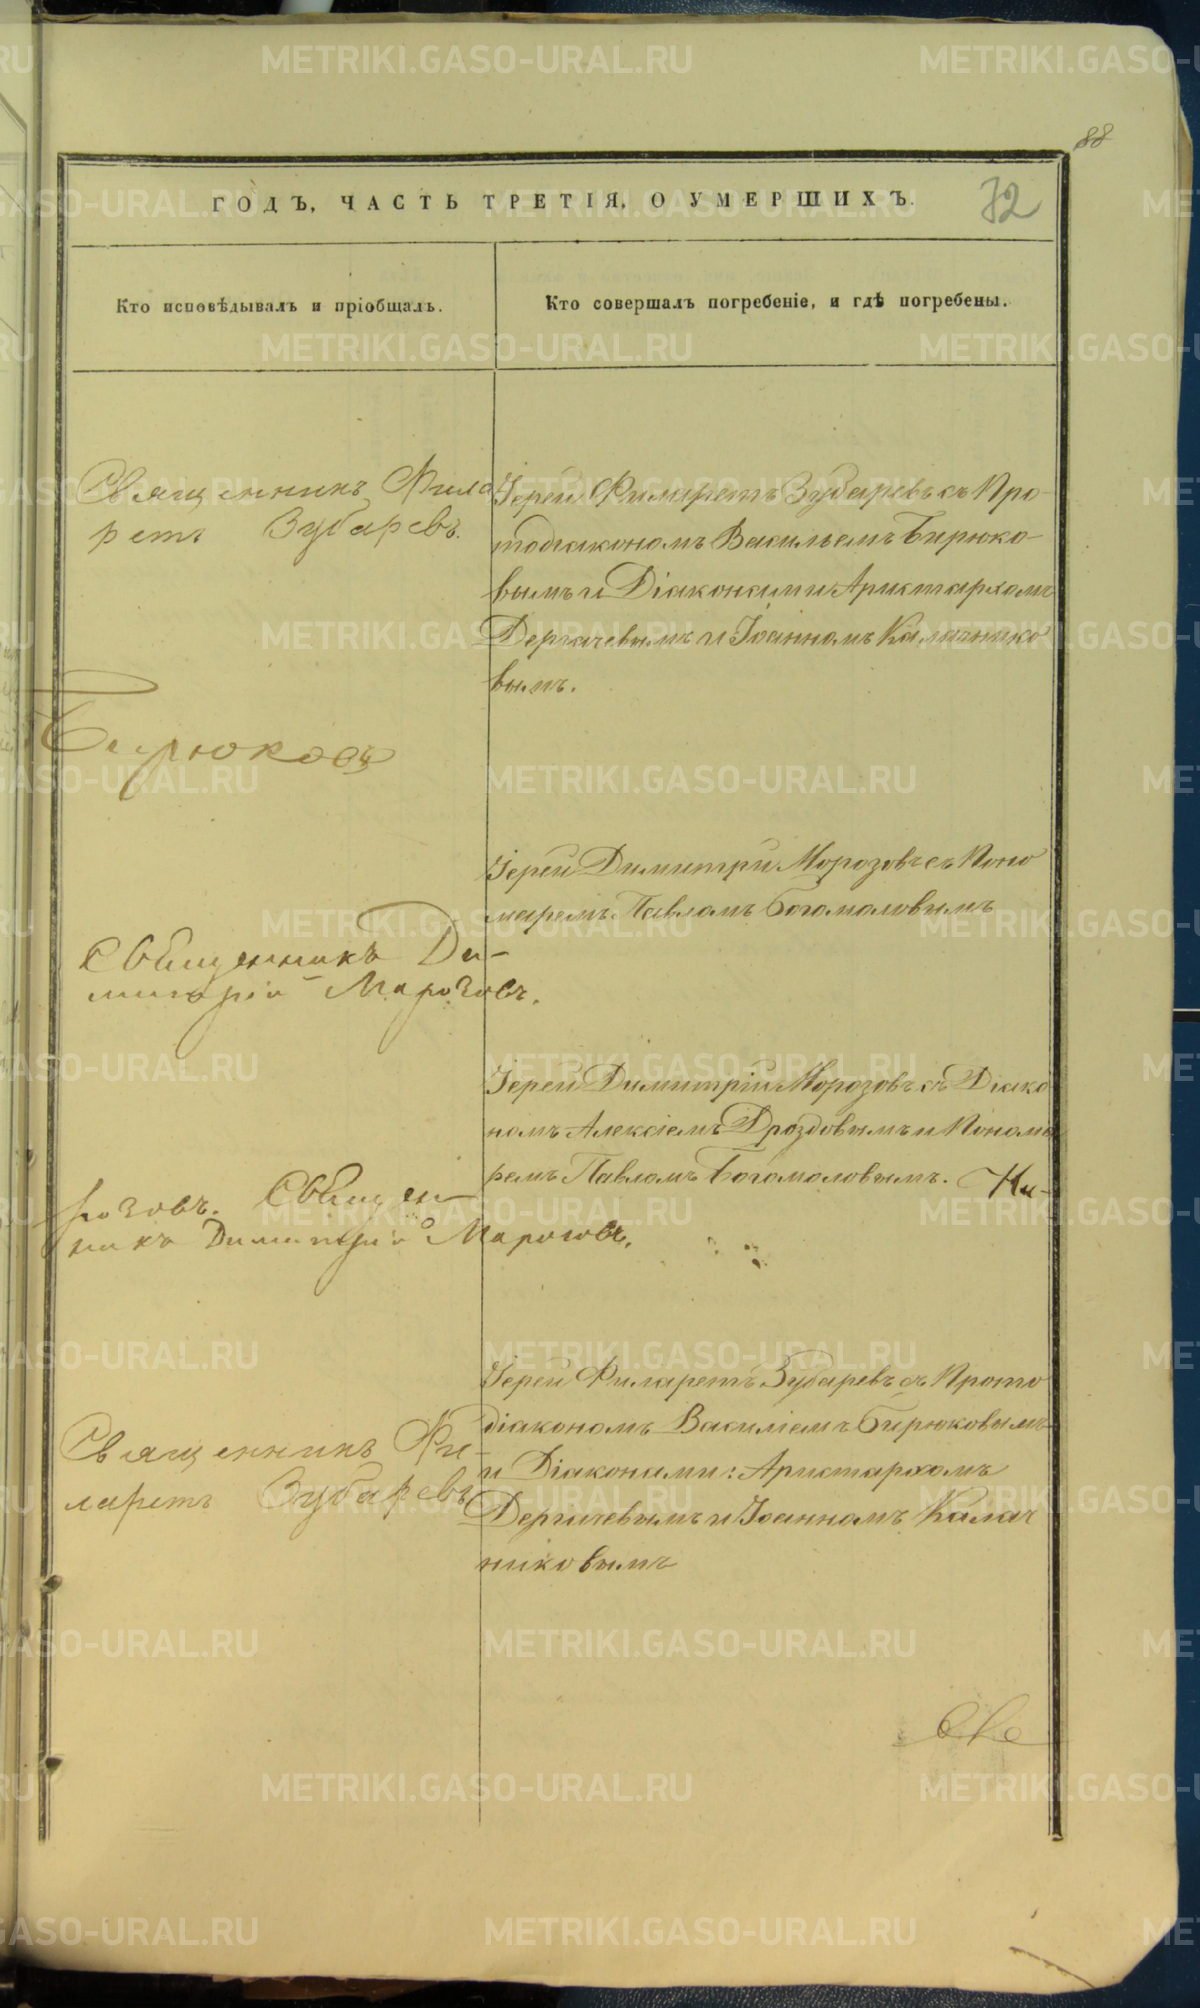 88
ГОДЪ, ЧАСТЬ ТРЕТІЯ, О УМЕРШИХЪ.
72
Кто исповѣдывалъ и пріобщалъ.
Кто совершалъ погребеніе, и гдѣ погребены.
Священникъ Фила
ретъ Зубаревъ.
Іерей Филаретъ Зубаревъ съ Про-
тодіакономъ Васильемъ Бирюко-
вымъ и Діаконами Аристархомъ
Дергачевымъ и Іоанномъ Калачнико
вымъ.
Бирюковъ
Іерей Димитрій Морозовъ съ Поно
маремъ Павломъ Богомоловымъ
Священникъ Ди-
митрій Марозовъ.
Іерей Димитрій Морозовъ съ Діако
номъ Алексіемъ Дроздовымъ и Понома
ремъ Павломъ Богомоловымъ. На-
розовъ. Священ
никъ Димитрій Марозовъ.
Іерей Филаретъ Зубаревъ съ Прото
діакономъ Василіемъ Бирюковымъ
и Діаконами: Аристархомъ
Дергачевымъ и Іоанномъ Калач
никовымъ
Священникъ Фи-
ларетъ Зубаревъ
Све
METRIKI.GASO-URAL.RU